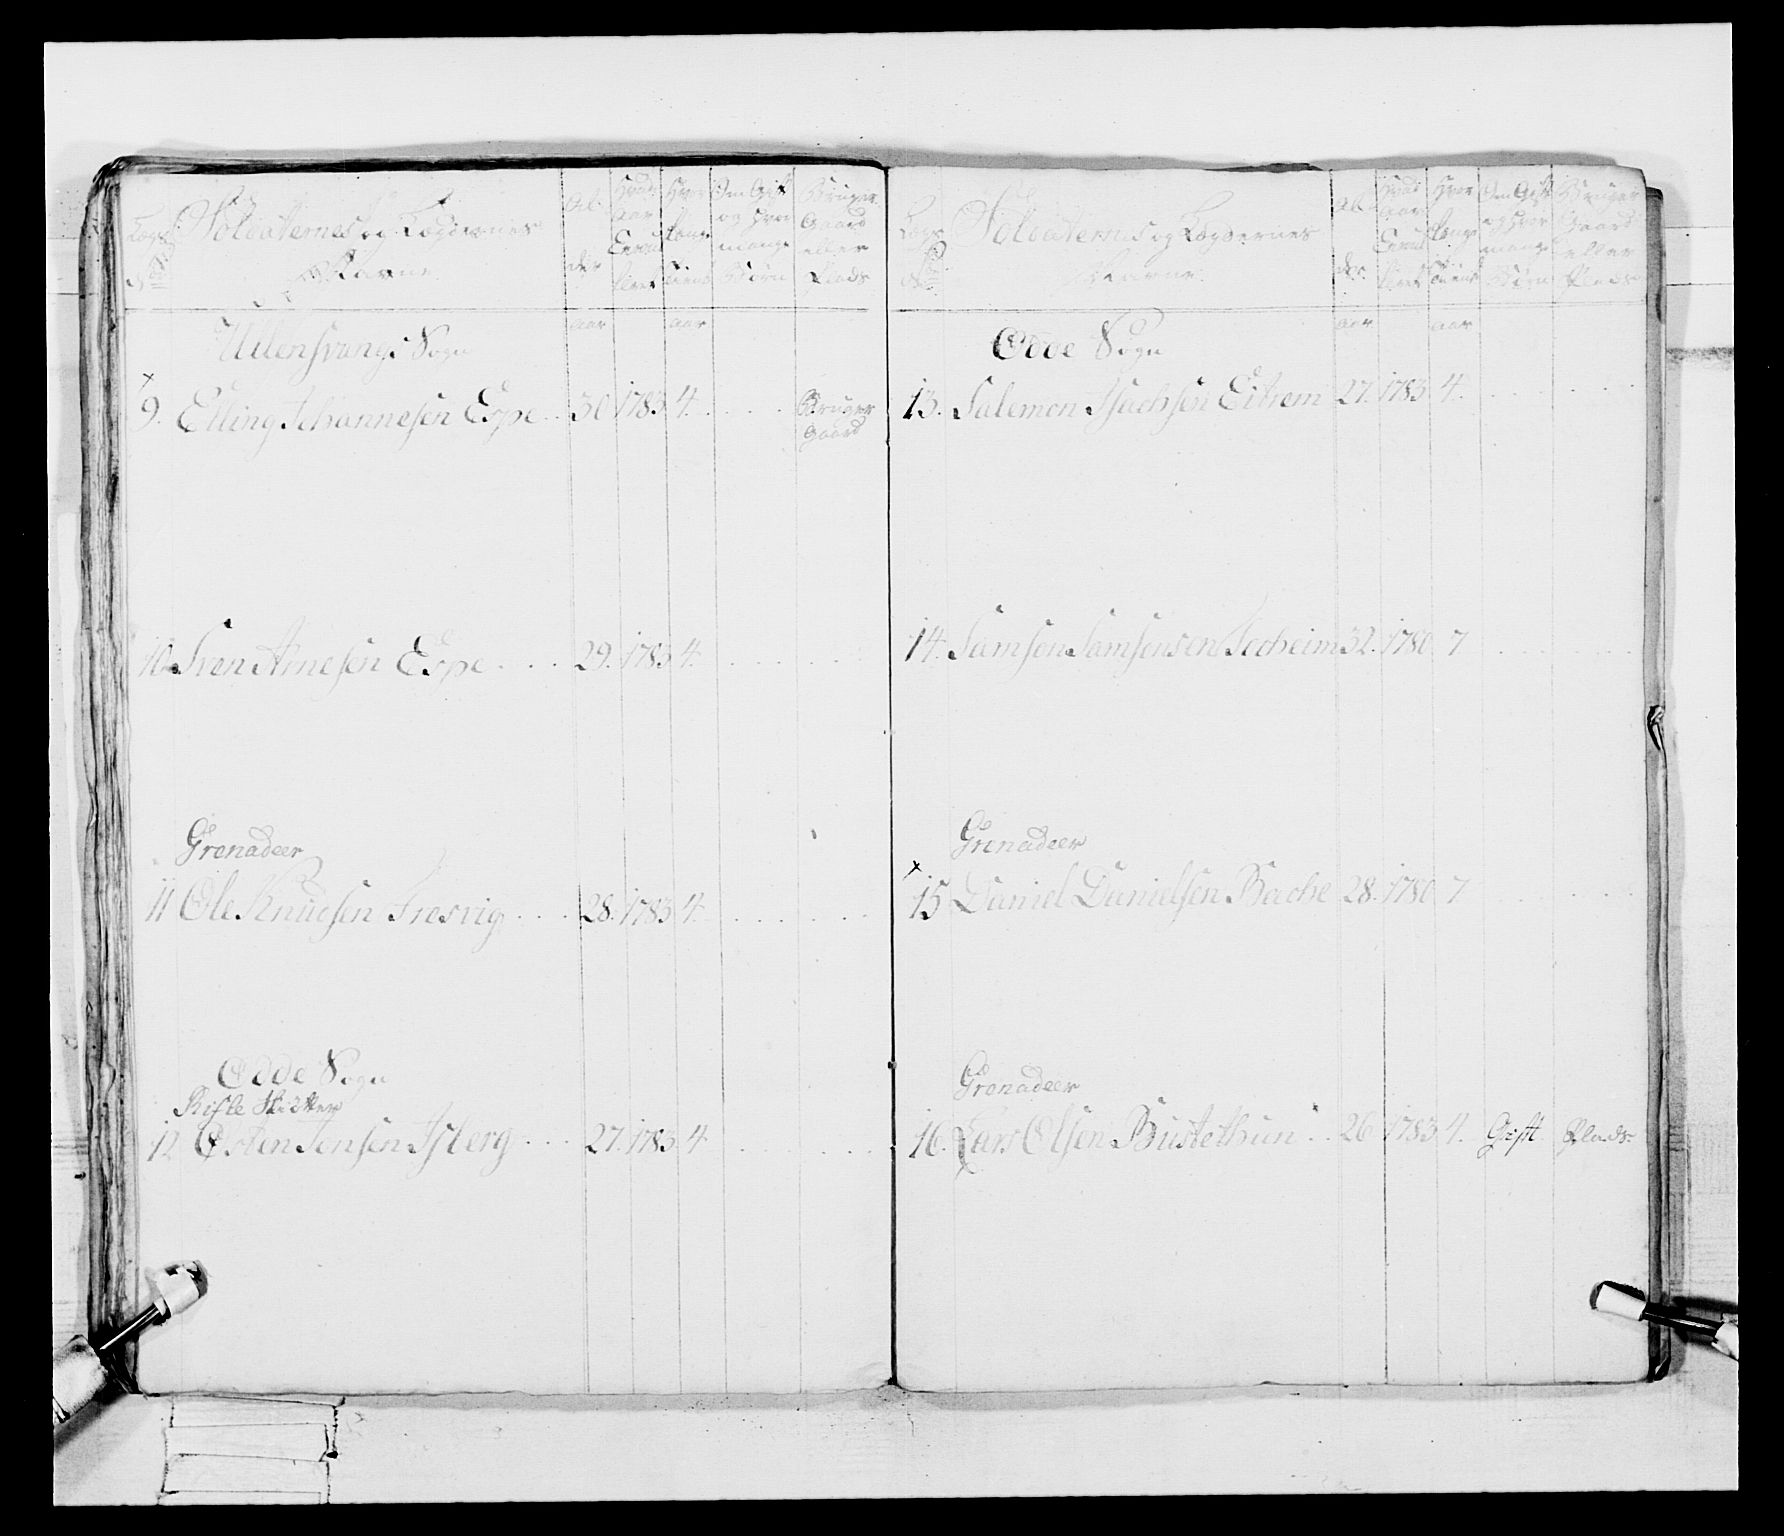 Soldaternes og Lægdernes Navne
Al- der
Hvad Aar Enroulleret
Hvor lenge tient
Om Gift og Hvor mange Børn
Bruger Gaard eller Plads
aar aar
Ullensvangs Sogn
9. Elling Johannesen Espe .. 30 1783 4. . . . . Bruger Gaard
10. Sven Arnesen Espe . . . . 29. 1783 4. . . . . . .
Grenadeer
11 Ole Knudsen Fresvig . . . 28. 1783 4. . . . . . .
Odde Sogn
Rifle Skötter
12 Osten Jonsen Isberg . . . 27. 1783 4. . . . . . .
Soldaternes og Lægdernes Navne
Al- der
Hvad Aar Enroulleret
Hvor lenge tient
Om Gift og Hvor mange Børn
Bruger Gaard eller Plads
aar aar
Odde Sogn
13. Salemon Isachsen Eitrem 27. 1783 4. . . . .
14. Samson Samsonsen Seeheim 32. 1780 7 . . . . . .
Grenadeer
15 Daniel Danielsen Bache 28. 1780 7 . . . . .
Grenadeer
16. Lars Olsen Bustethun . . 26 1783 4. Gift Plads